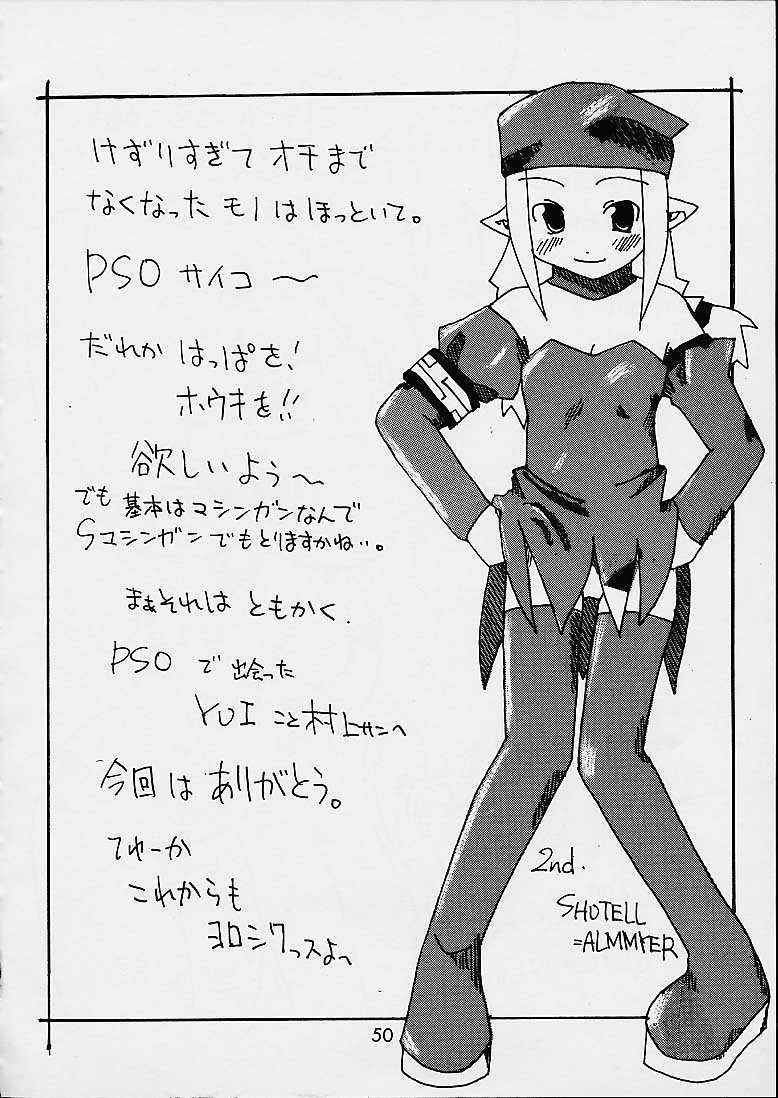 けずりすぎて オチまで
なくなった モノは ほっといて。
PSO サイコ〜
だれか はっぱを!
ホウキを!!
欲しいよう〜
でも 基本は マシンガンなんで
Sマシンガン でもとりますかね‥。
まぁそれは ともかく.
PSO で 出会った
YUI こと 村上サンへ
今回は ありがとう。
てゆーか
これからも
ヨロシクっスよ〜
2nd.
SHOTELL
=ALMMYER
50